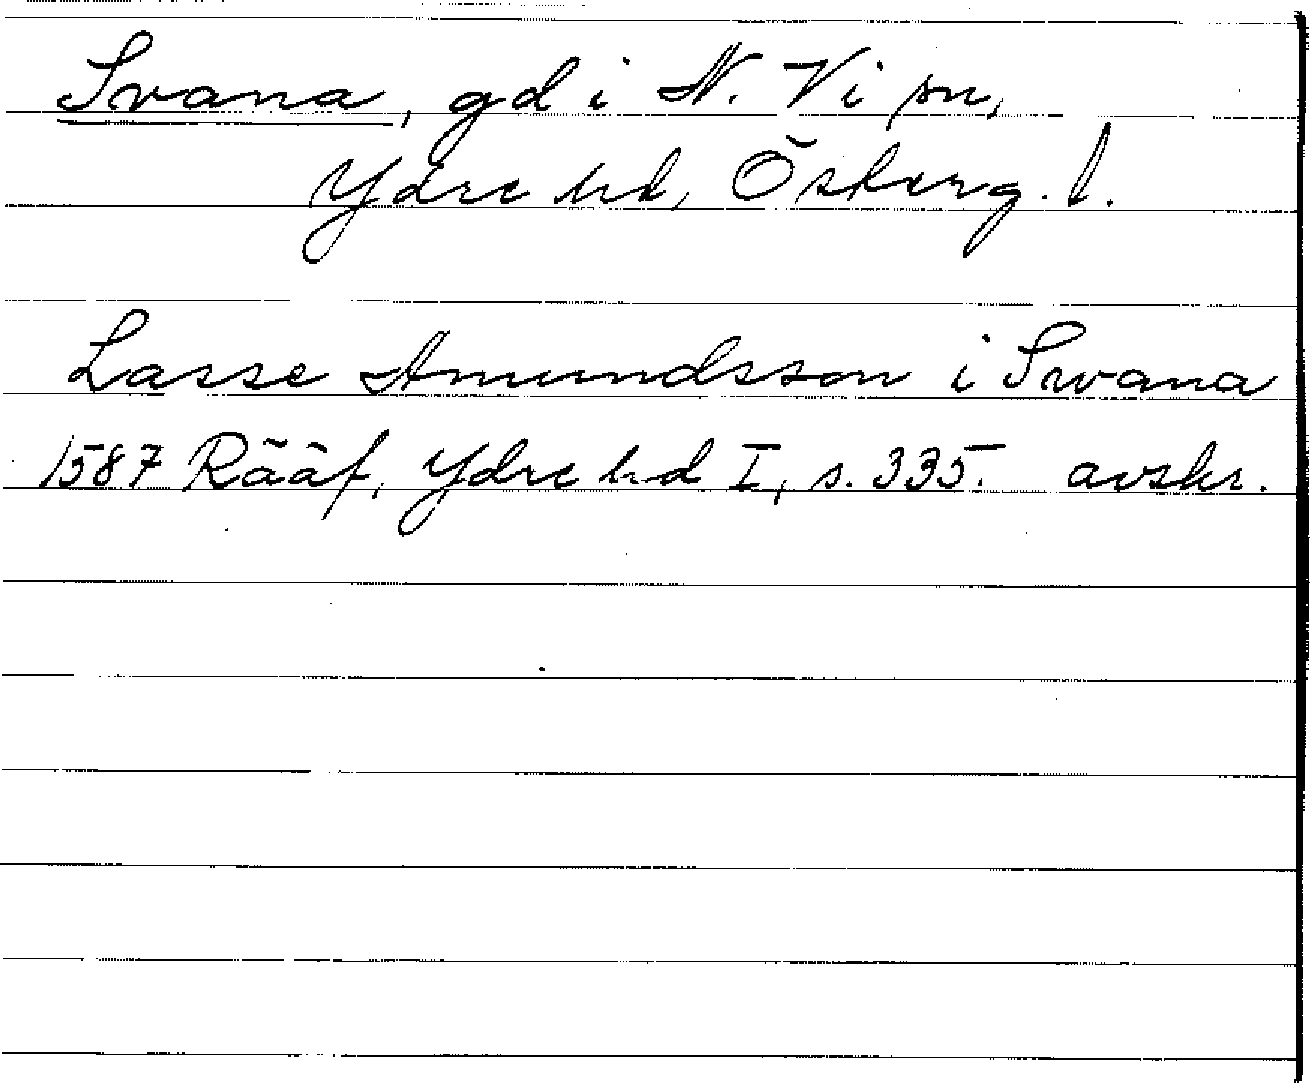 Svana, gd i N. Vi sn,
Ydre hd, Österg. l.
Lasse Amundsson i Swana
1587 Rääf, Ydre hd I, s. 335. avskr.